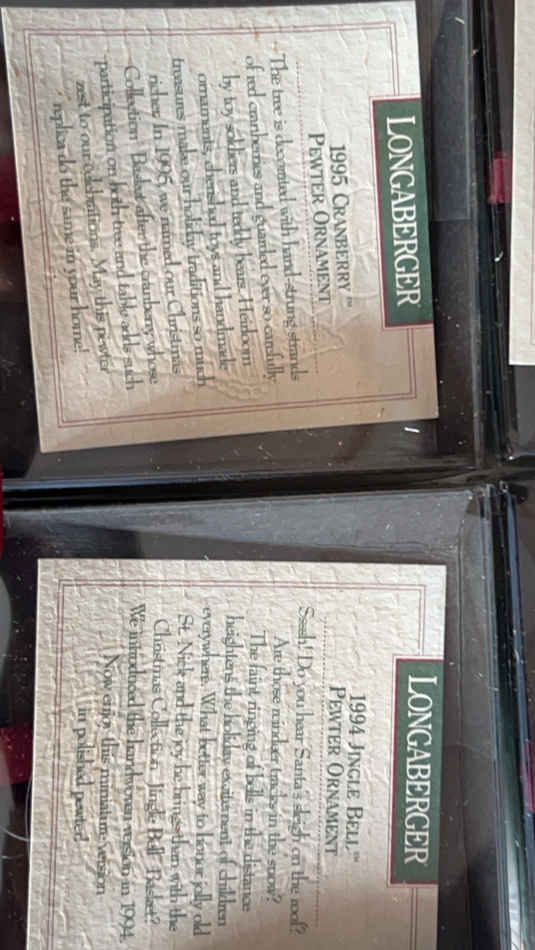 LONGABERGER
1995 CRANBERRY™
PEWTER ORNAMENT
The tree is decorated with hand-strung strands
of red cranberries and guarded ever so carefully
by toy soldiers and teddy bears. Heirloom
ornaments, cherished toys and handmade
treasures make our holiday traditions so much
richer. In 1995, we named our Christmas
Collection Basket after the cranberry, whose
participation on both tree and table adds such
zest to our celebrations. May this pewter
replica do the same in your home!
LONGABERGER
1994 JINGLE BELL™
PEWTER ORNAMENT
Sssh! Do you hear Santa's sleigh on the roof?
Are those reindeer tracks in the snow?
The faint ringing of bells in the distance
heightens the holiday excitement of children
everywhere. What better way to honor jolly old
St. Nick and the joy he brings than with the
Christmas Collection Jingle Bell Basket?
We introduced the handwoven version in 1994.
Now enjoy this miniature version
in polished pewter!